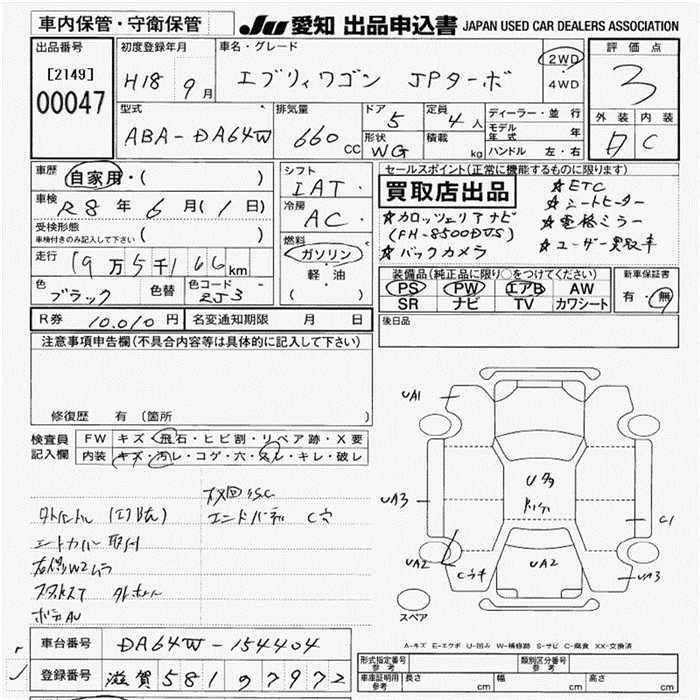 車内保管・守衛保管
JU 愛知 出品申込書 JAPAN USED CAR DEALERS ASSOCIATION
出品番号
[2149]
00047
初度登録年月
H18 9月
車名・グレード
エブリィワゴン JPターボ
2WD
4WD
評価点
3
外装 内装
A C
型式
ABA-DA64W
排気量
660 CC
ドア 5
形状 WG
定員 4人
積載 kg
ディーラー・並行
モデル年式 年
ハンドル 左・右
車歴 自家用・( )
車検 R8年 6月(1日)
受検形態
車検付きのみ記入して下さい ( )
走行 19万5千166km
色 ブラック 色替 色コード ZJ3
シフト
IAT・
冷房
AC・
燃料
ガソリン
軽・油
( )
セールスポイント(正常に機能するものに限ります)
買取店出品
☆カロッツェリアナビ
(FH-8500DVS)
☆バックカメラ
☆ETC
☆シートヒーター
☆電格ミラー
☆ユーザー買取車
装備品(純正品に限り○をつけてください)
PS PW エアB AW
SR ナビ TV カワシート
新車保証書
有・無
R券 10,010円 名変通知期限 月 日
後日品
注意事項申告欄(不具合内容等は具体的に記入して下さい)
修復歴 有 (箇所
検査員記入欄
FW キズ・飛石・ヒビ割・リペア跡・X要
内装 キズ・汚レ・コゲ・穴・スレ・キレ・破レ
エンドパーテル C穴
シートカバー取付
ボデーAU
UA1
UA3
UA2
Cウキ
U多
UA2
C1
UA3
スペア
A-キズ E-エクボ U-凹み W-補修跡 S-サビ C-腐食 XX-交換済
車台番号 DA64W-154404
登録番号 滋賀 581 わ 7972
型式指定番号 参考
類別区分番号 参考
車庫証明用 参考 長さ cm 幅 cm 高さ cm